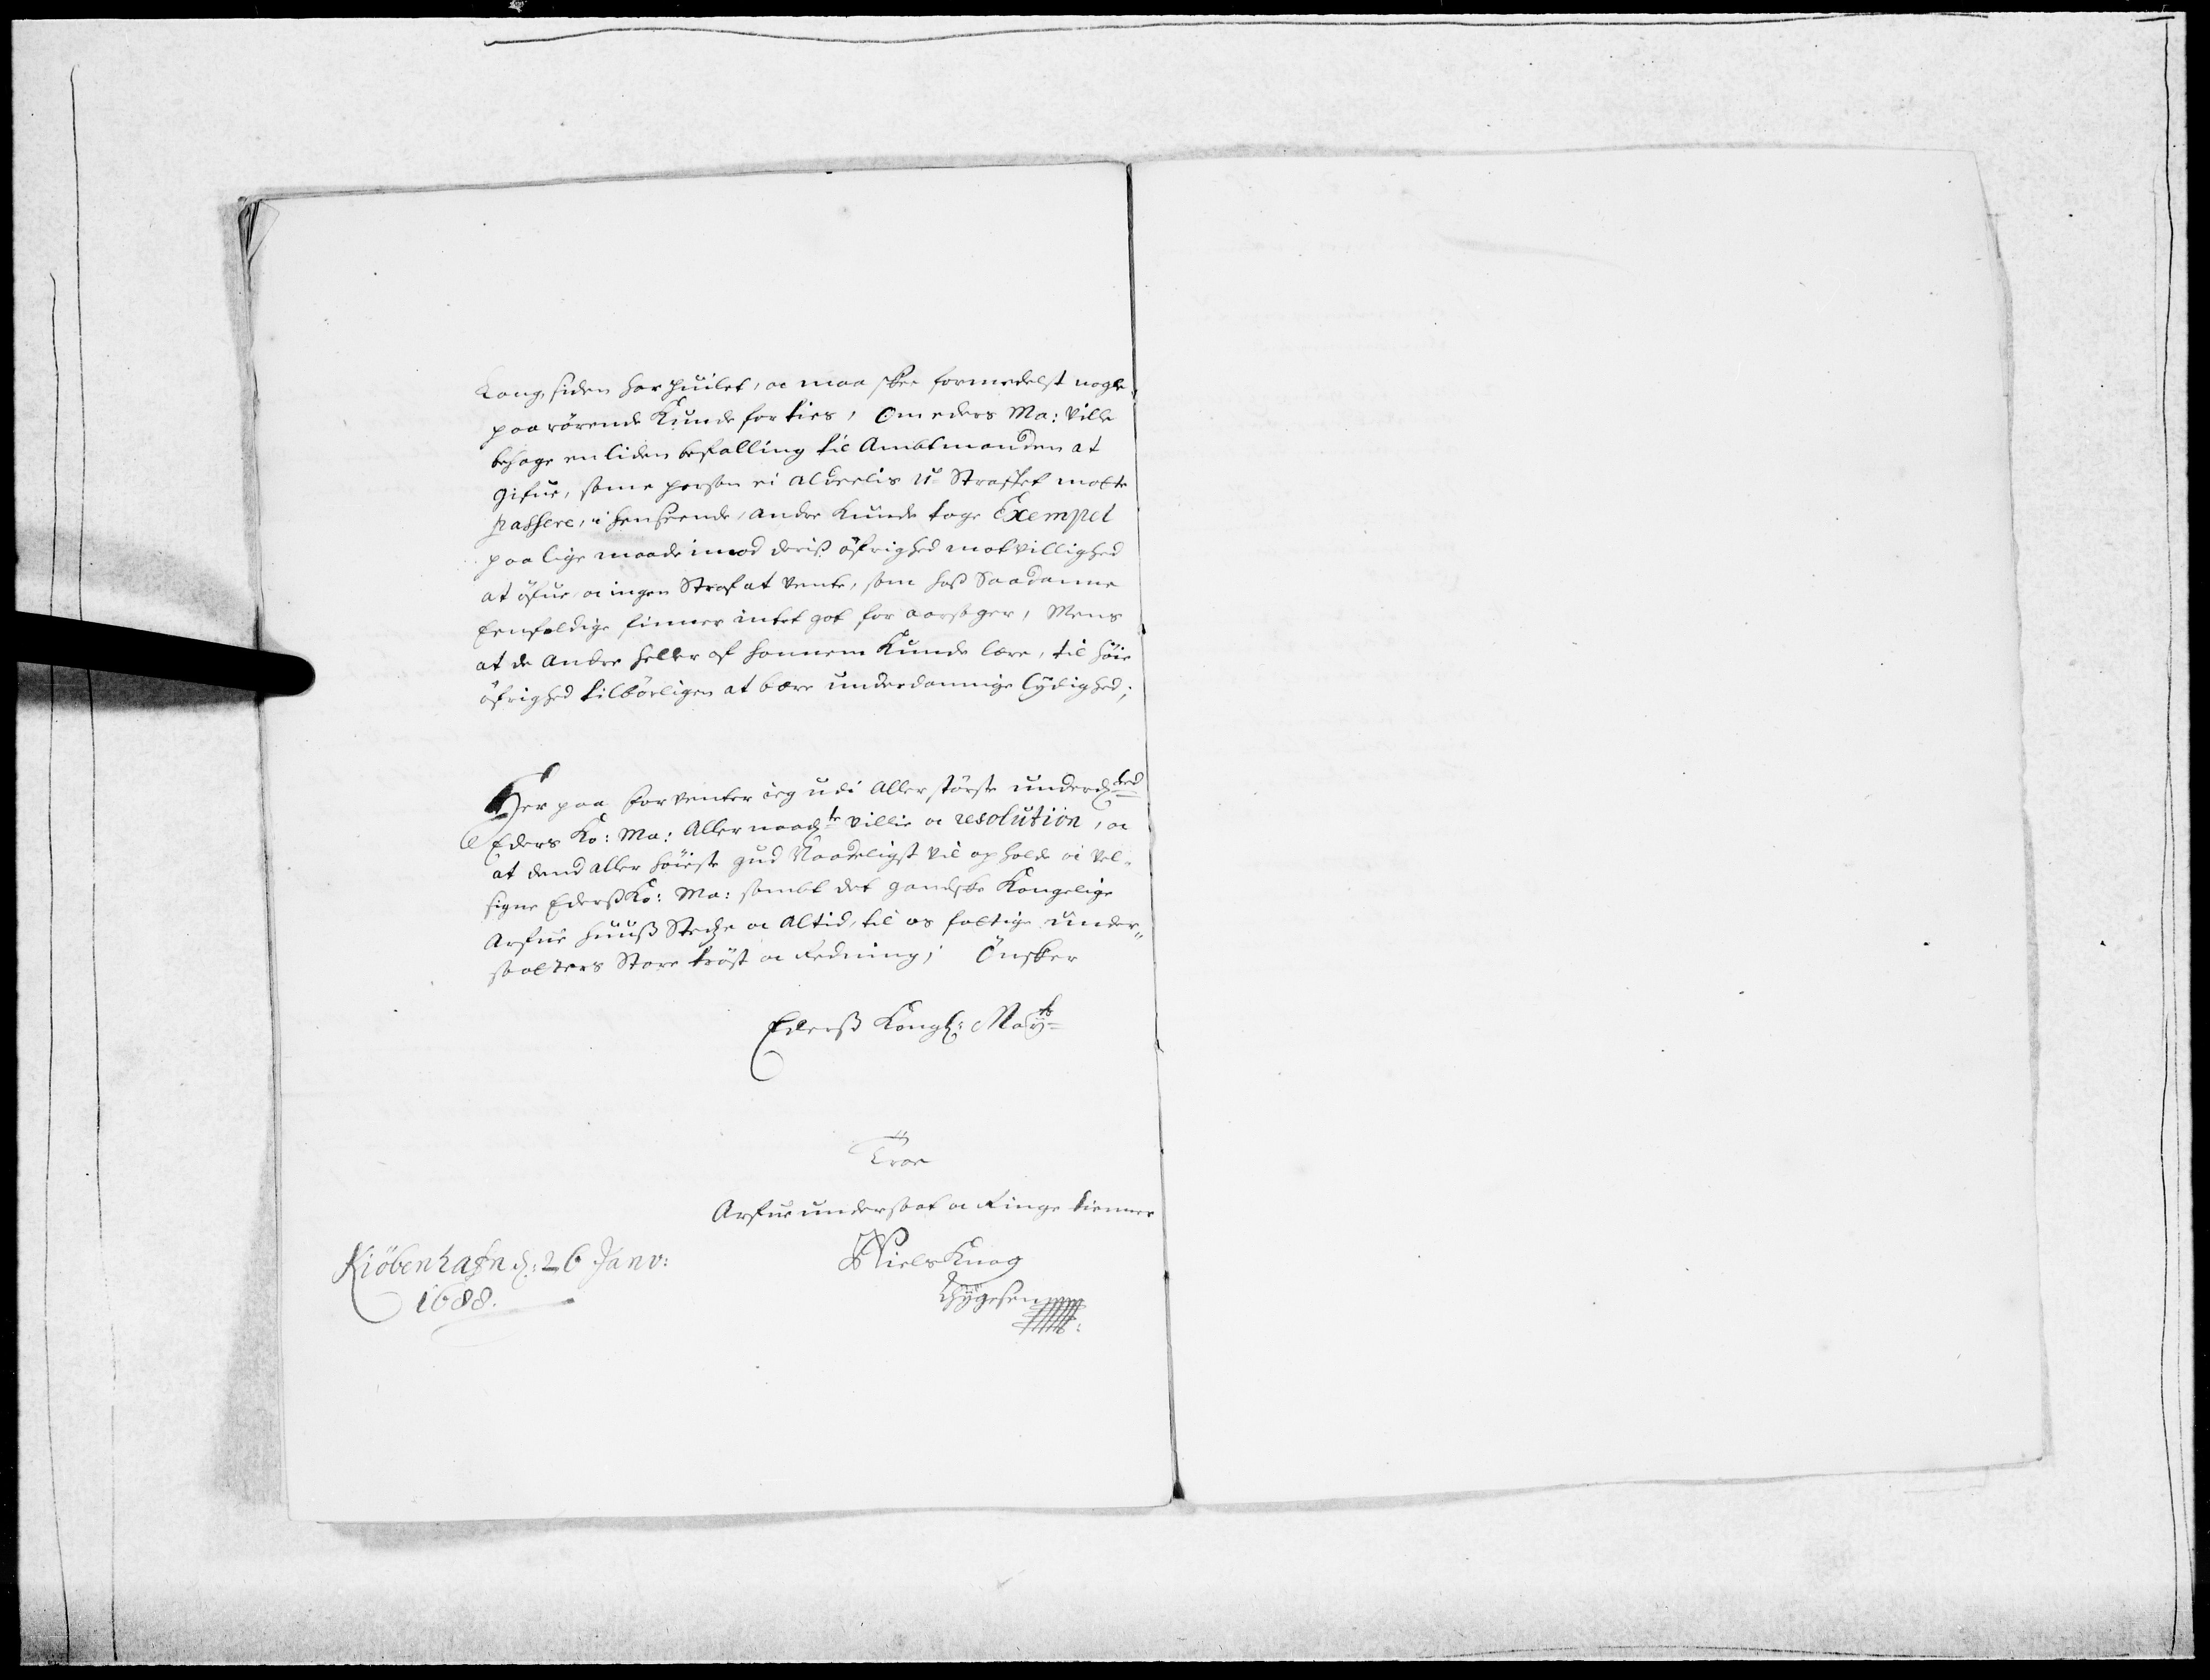 Lang siden har huilet, oc maa skee formedelst nogle
paarörende Kunde forties, Om eders Ma: Ville
behage en liden befalling til Ambtmanden at
gifue, samme person ei aldeelis u-Straffet motte
passere, i henseende, andre Kunde tage Exempel
paa lige maade imod deris öfrighed motvillighed
at öfue, oc ingen Straf at vente, som hos Saadanne
Eenfoldige finner intet got foraarsager, Mens
at de andre heller af hannem Kunde lære, til höie
öfrighed tilbörligen at bære underdannige lÿdighed;
Her paa forventer ieg udi Aller störste underd:hed
Eders Ko: Ma: Allernaad:te Villie oc resolution, oc
at dend aller höieste gud Naadeligst vil opholde oc vel-
signe Ederß Ko: Ma: sambt det gandske Kongelige
Arfue huuß Stedze oc altid, til os fattige under-
saatters Store tröst oc Redning; Önsker
Ederß Kongl: Maÿts
Troe
Arfue undersaat oc Ringe tienner
Niels Knag
Thÿgesen
Kiöbenhafn d: 26 Janv:
1688.